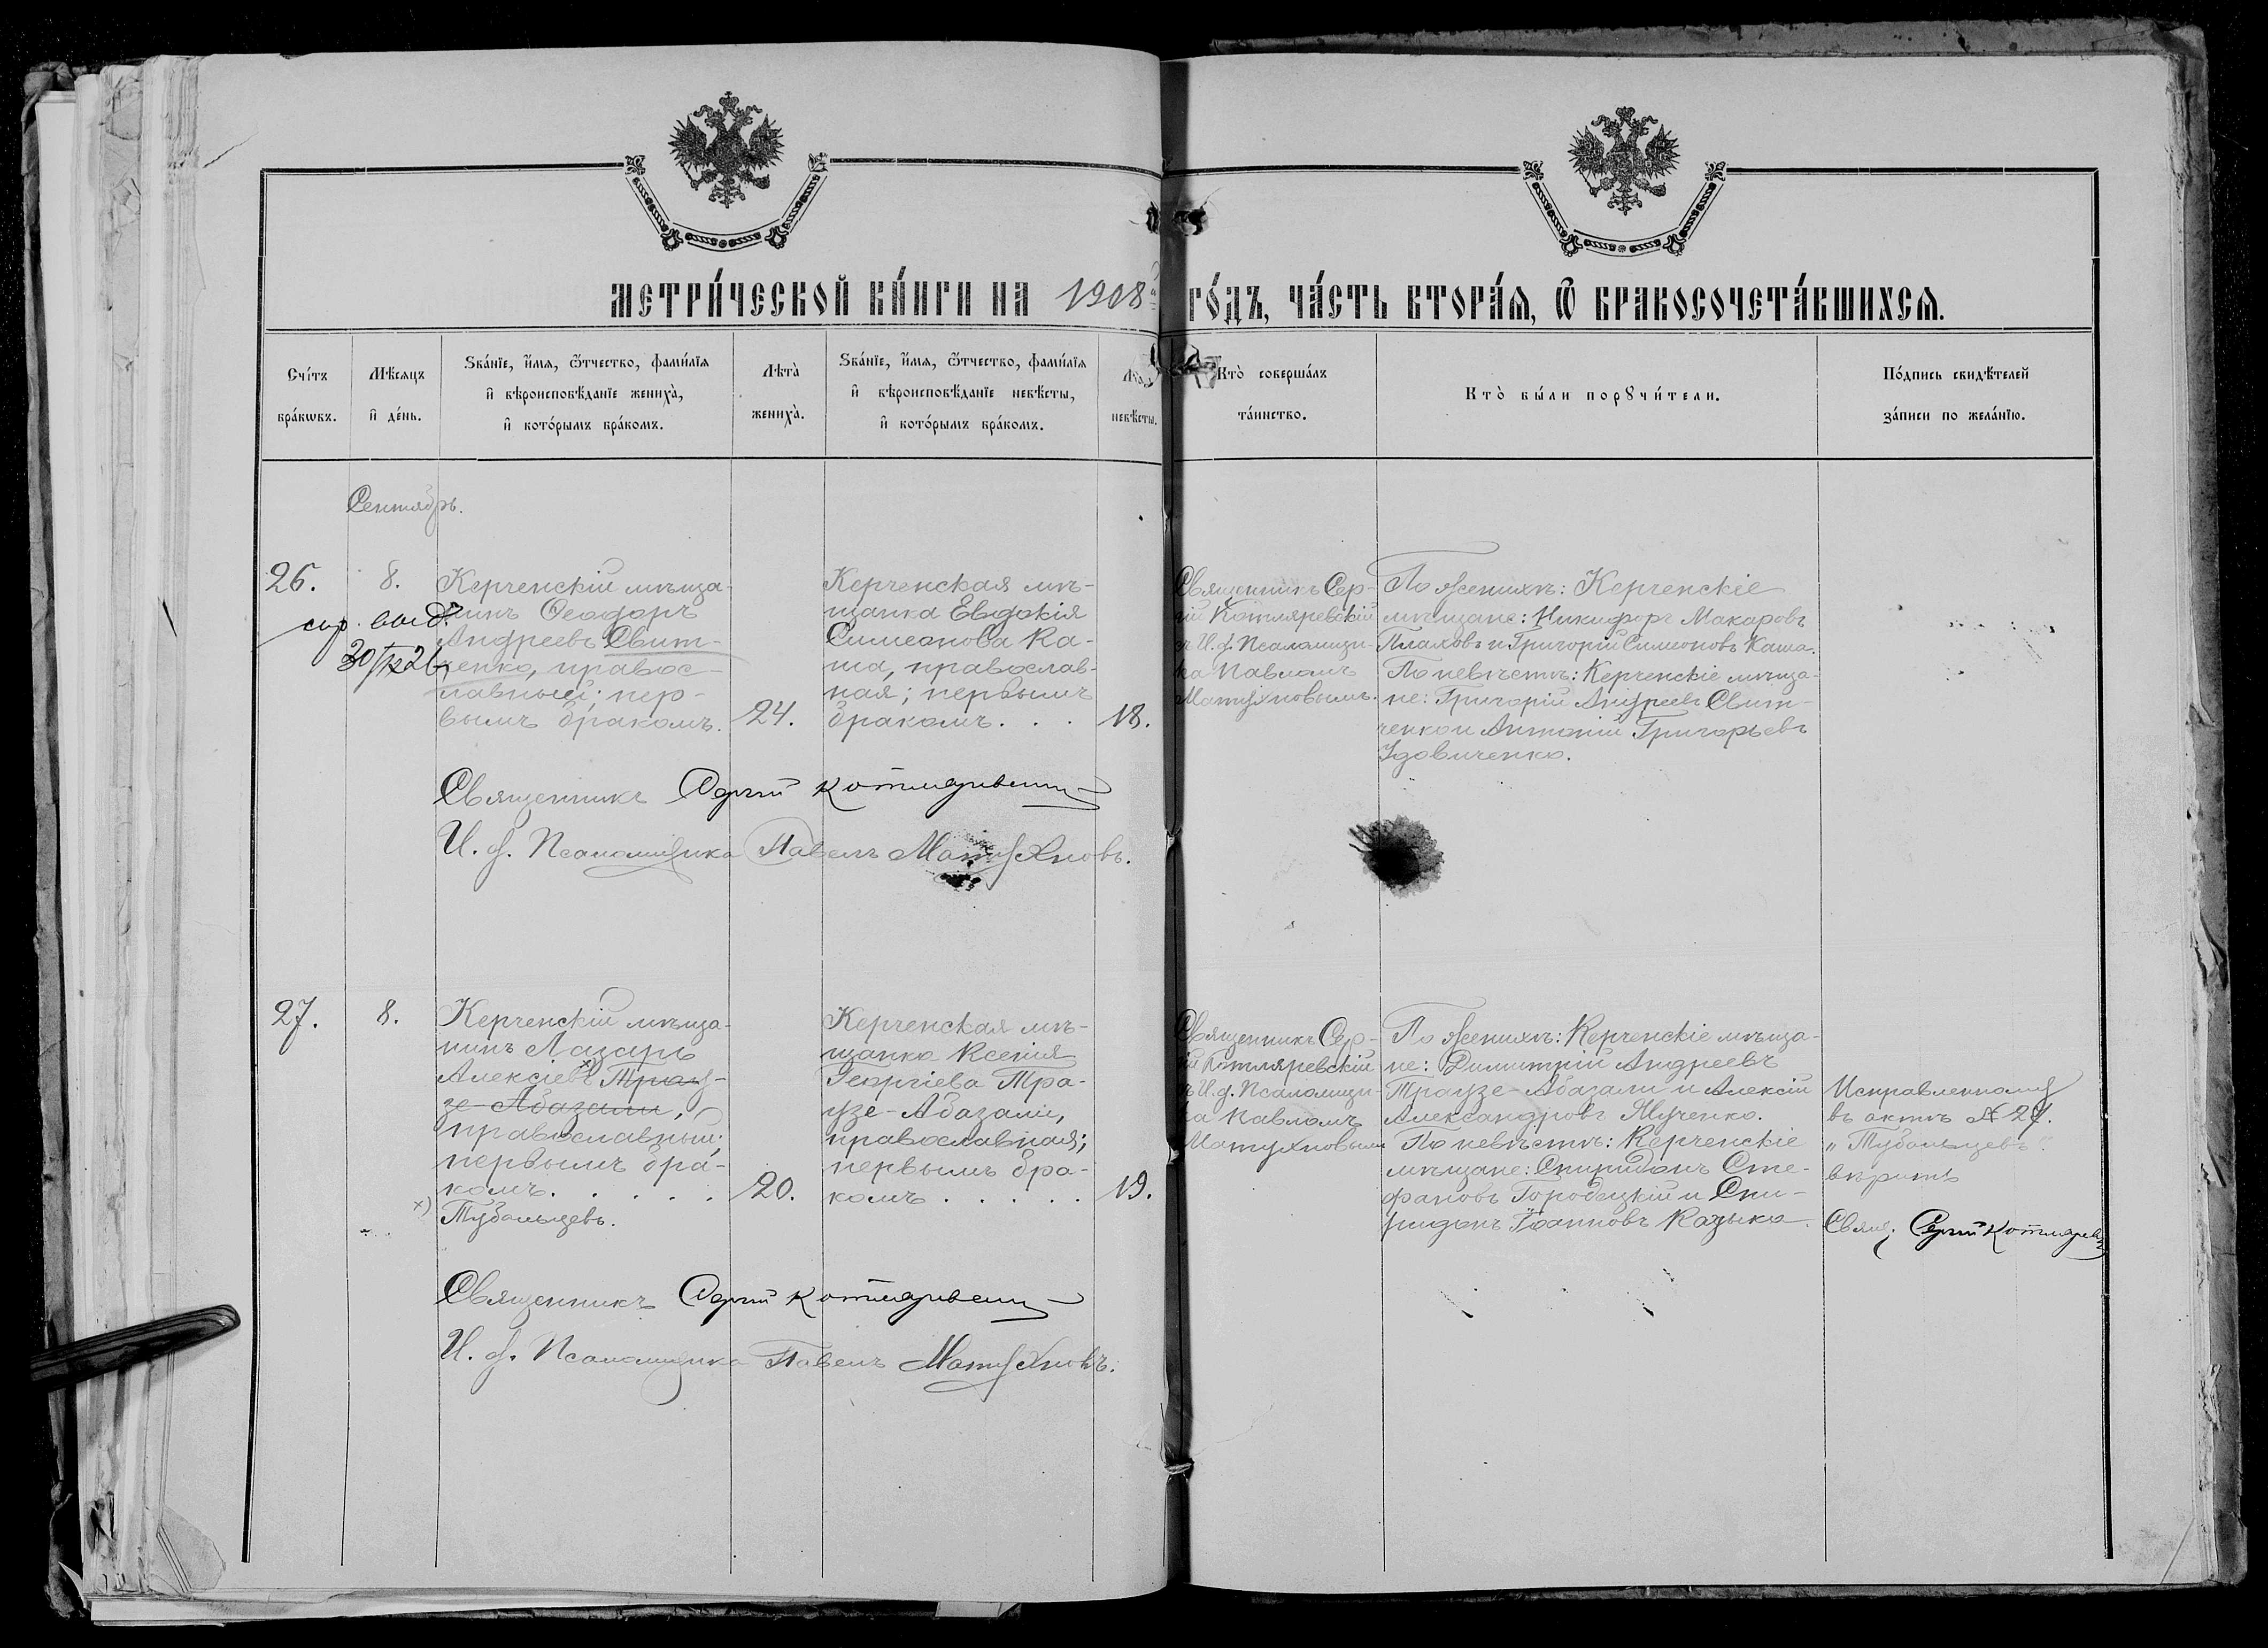 МЕТРИ́ЧЕСКОЙ КНИ́ГИ НА 1908 ГО́ДЪ, ЧА́СТЬ ВТОРА́Ѧ, Ѿ БРАКОСОЧЕТА́ВШИХСѦ.
Счѣтъ бра́кѡвъ.
Мѣ́сѧцъ и де́нь.
Ѕва́нїе, и́мѧ, ѻ́тчество, фами́лїѧ и вѣроисповѣ́данїе жениха̀, и кото́рымъ бра́комъ.
Лѣта̀ жениха̀.
Ѕва́нїе, и́мѧ, ѻ́тчество, фами́лїѧ и вѣроисповѣ́данїе невѣ́сты, и кото́рымъ бра́комъ.
невѣ́сты.
Кто̀ соверша́лъ та́инство.
Кто̀ бы́ли порꙋчи́тели.
По́дпись свидѣ́телей за́писи по жела́нїю.
Сентябрь.
26.
8.
Керченскій мѣща-
нинъ Ѳеодоръ
Андреевъ Свит-
ченко, правос-
лавный; пер-
вымъ бракомъ.
24.
Керченская мѣ-
щанка Евдокія
Симеонова Ка-
ша, православ-
ная; первымъ
бракомъ...
18.
Священникъ Сер-
гій Котляревскій
съ И.д. Псаломщи-
ка Павломъ
Матухновымъ.
По женихѣ: Керченскіе
мѣщане: Никифоръ Макаровъ
Плаховъ и Григорій Симеоновъ Каша.
По невѣстѣ: Керченскіе мѣща-
не: Григорій Андреевъ Свит-
ченко и Антоній Григорьевъ
Удовиченко.
Священникъ Сергій Котляревскій
И. д. Псаломщика Павелъ Матухновъ.
27.
8.
Керченскій мѣща-
нинъ Лазарь
Алексіевъ x) Трау-
зе-Абазали,
православный;
первымъ бра-
комъ......
x) Тубольцевъ.
20.
Керченская мѣ-
щанка Ксенія
Георгіева Тра-
узе-Абазали,
православная;
первымъ бра-
комъ.....
19.
Священникъ Сер-
гій Котляревскій
съ И.д. Псаломщи-
ка Павломъ
Матухновымъ
По женихѣ: Керченскіе мѣща-
не: Димитрій Андреевъ
Траузе-Абазали и Алексій
Александровъ Мученко.
По невѣстѣ: Керченскіе
мѣщане: Спиридонъ Сте-
фановъ Городецкій и Спи-
ридонъ Іоанновъ Казыка.
Исправленному
въ актѣ № 27.
„Тубольцевъ"
вѣрить
Свящ. Сергій Котляревскій
Священникъ Сергій Котляревскій
И. д. Псаломщика Павелъ Матухновъ.